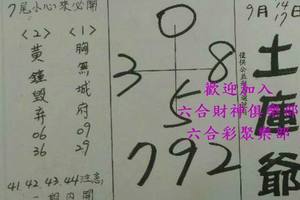 7尾小心來必開
<1>
胸無城府
09
29
<2>
黃鐘毀弃
06
36
41.42.43.44注意
0
3 8
5
792
歡迎加入
六合財神俱樂部
六合彩聚樂部
9月14
17日
土庫爺